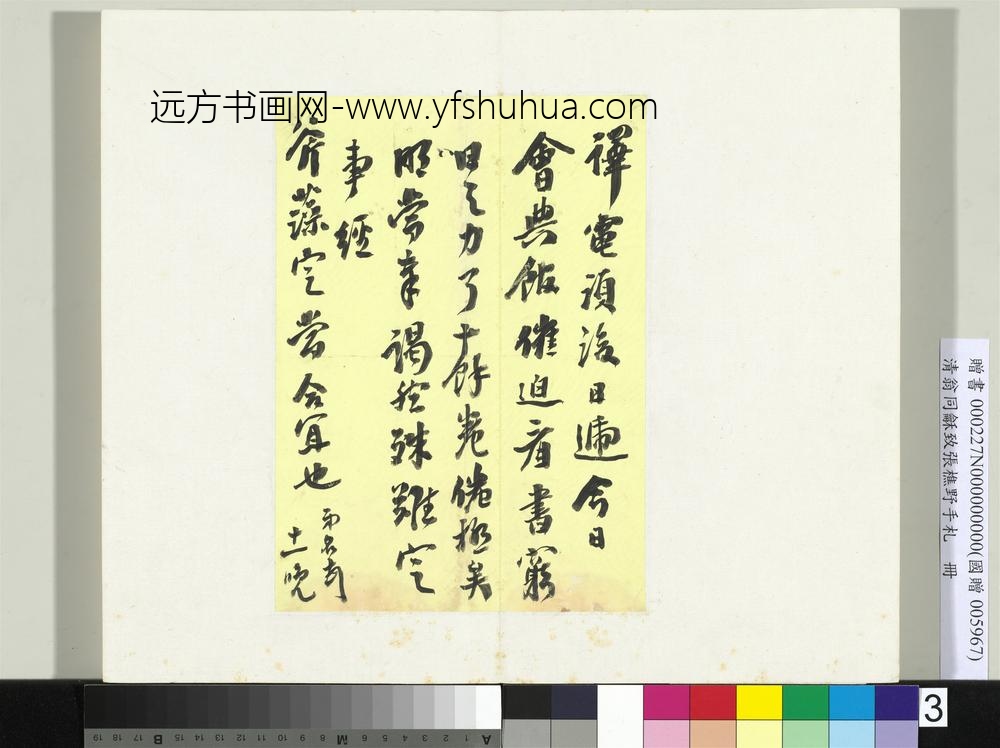 远方书画网-www.yfshuhua.com
電須後日遞今日
會典館催迫看書窮
日之力了十餘卷倦極矣
明當奉謁然殊難定
事經
斧藻定當合宜也
十一晚
贈書 000227N000000000(國贈 005967)
清翁同龢致張樵野手札 冊
3
19 18 17 16 15 B 12 11 10 9 8 M 6 5 4 3 2 1 A